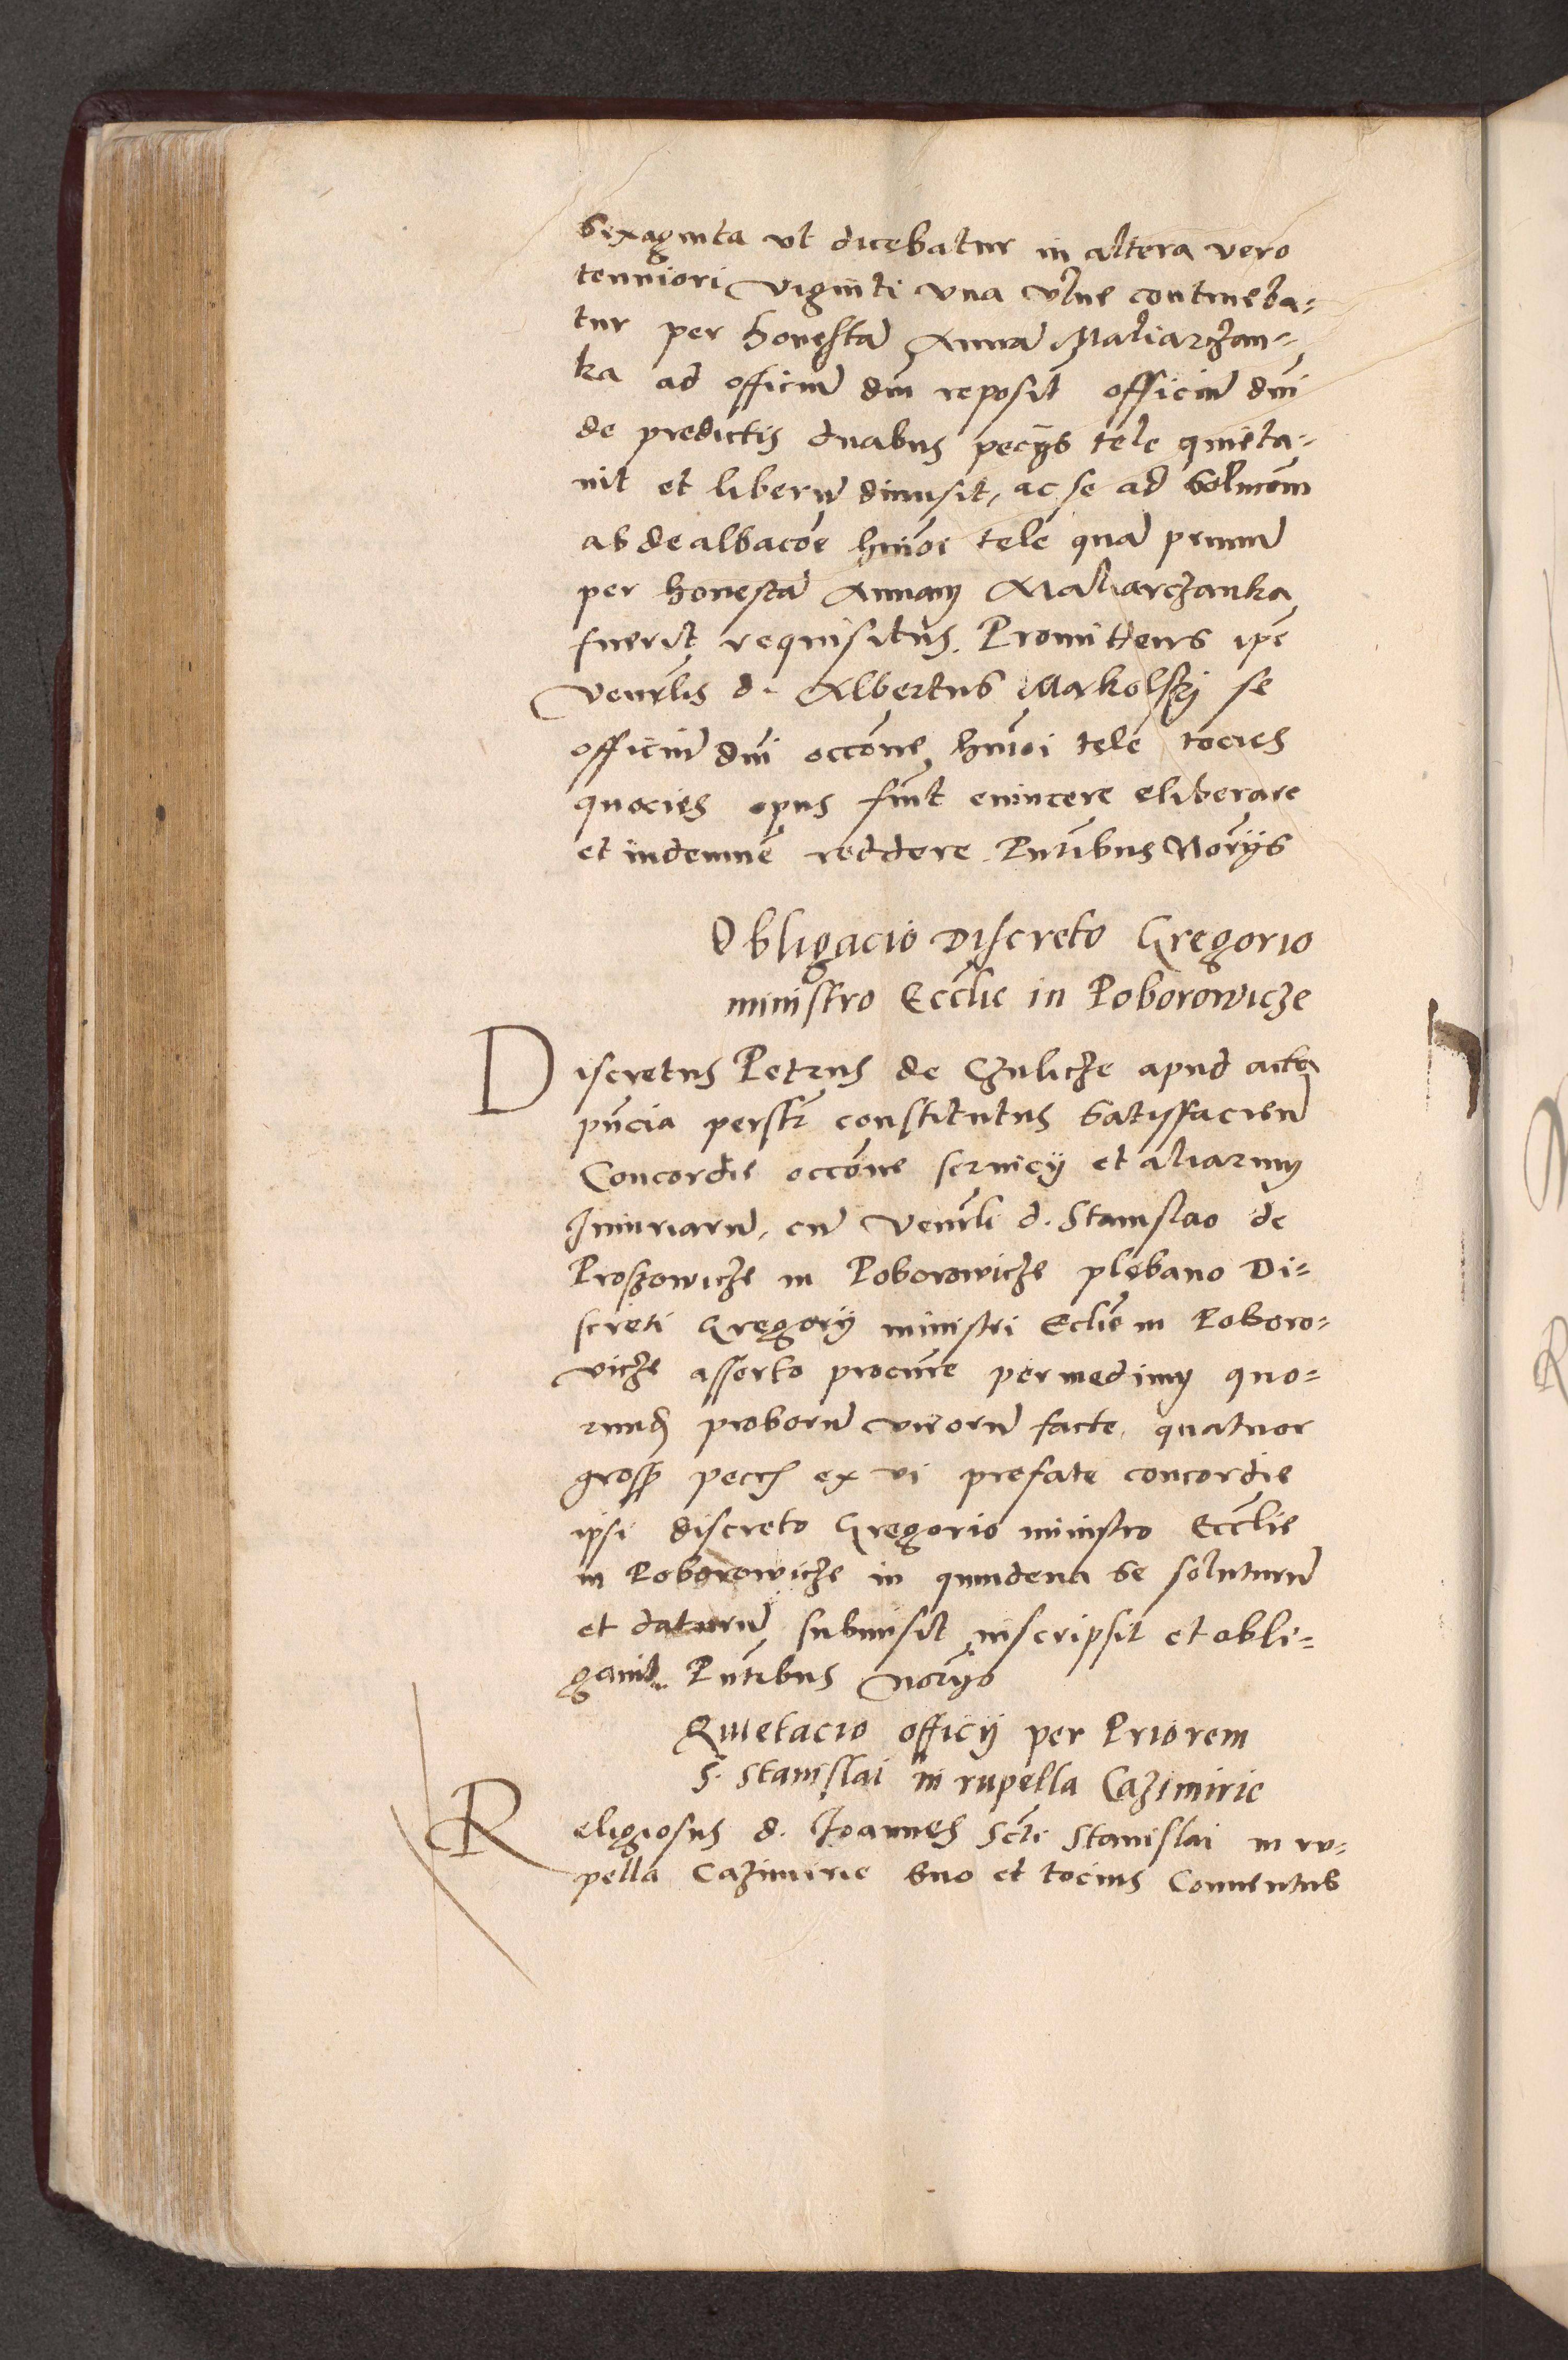 Sexaginta ut dicebatur in altera vero
tenuiori viginti una ulne contineba=
tur per honestã Annã Maliarzan=
ka ad officiũ dni reposit officiũ dni
de predictis duabus pecÿs tele quieta=
uit et liberũ dimisit, ac se ad solucõm
ab dealbacõe huiõi tele quã primũ
per honestã Annam Maliarczanka
fuerit requisitus. Promittens ipe
Venerlis d. Albertus Makolskj se
officiũ dni occõne huiõi tele tocies
quocies opus fuit euincere eliberare
et indemnẽ reddere. Pntibus Norÿs
Obligacio Discreto Gregorio
ministro Ecclie in Poborowicze
Discretus Petrus de Czulicze apud acta
pñcia perstr constitutus Satisfacien
Concordie occõne seruicÿ et aliarum
Iniuriarũ, cũ Venerli d. Stanislao de
Proszowicze in Poborowicze plebano Di=
screti Gregorÿ ministri Eclie in Poboro=
vicze asserto procure per medium quo=
rund proborũ virorũ facte, quatuor
gross pecc ex vi prefate concordie
ipsi discreto Gregorio ministro Ecclie
in Poborowicze in quindena se soluturũ
et daturũ submisit inscripsit et obli=
gauit. Pntibus Norÿs
Quietacio officÿ per Priorem
S. Stanislai in rupella Cazimirie
Religiosus d. Joannes Scti Stanislai in ru=
pella Cazimirie suo et tocius Conuentus